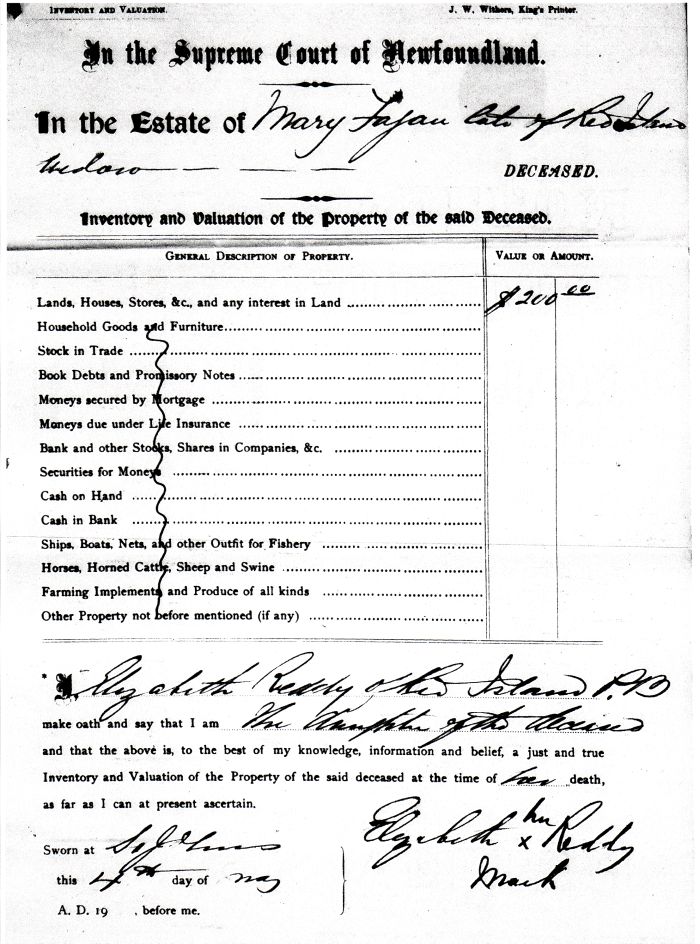 INVENTORY AND VALUATION. J. W. Withers, King's Printer.
In the Supreme Court of Newfoundland.
In the Estate of Mary Fagan late of Red Island
Widow DECEASED.
Inventory and Valuation of the Property of the said Deceased.
GENERAL DESCRIPTION OF PROPERTY. VALUE OR AMOUNT.
Lands, Houses, Stores, &c., and any interest in Land $200 00
Household Goods and Furniture
Stock in Trade
Book Debts and Promissory Notes
Moneys secured by Mortgage
Moneys due under Life Insurance
Bank and other Stocks, Shares in Companies, &c.
Securities for Moneys
Cash on Hand
Cash in Bank
Ships, Boats, Nets, and other Outfit for Fishery
Horses, Horned Cattle, Sheep and Swine
Farming Implements and Produce of all kinds
Other Property not before mentioned (if any)
* I, Elizabeth Reddy of Red Island P.B
make oath and say that I am the daughter of the deceased
and that the above is, to the best of my knowledge, information and belief, a just and true
Inventory and Valuation of the Property of the said deceased at the time of her death,
as far as I can at present ascertain.
her
Elizabeth x Reddy
Mark
Sworn at St Johns
this 4th day of May
A. D. 19 , before me.